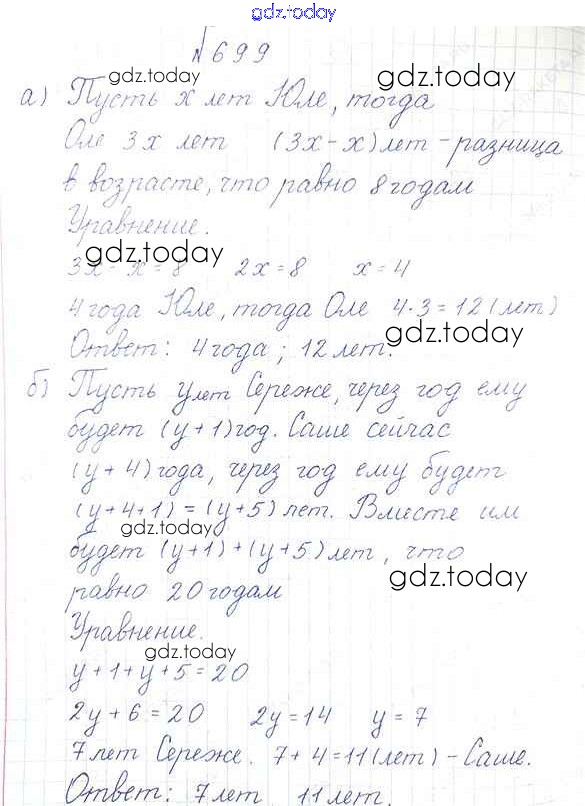 gdz.today
№699
gdz.today gdz.today
а) Пусть x лет Юле, тогда
Оле 3x лет (3x-x)лет-разница
в возрасте, что равно 8 годам
Уравнение.
gdz.today
3x-x=8 2x=8 x=4
4 года Юле, тогда Оле 4·3=12(лет)
gdz.today
Ответ: 4 года; 12 лет.
б) Пусть y лет Сереже, через год ему
будет (y+1)год. Саше сейчас
(y+4)года, через год ему будет
(y+4+1)=(y+5) лет. Вместе им
gdz.today
будет (y+1)+(y+5)лет, что
gdz.today
равно 20 годам
Уравнение.
gdz.today
y+1+y+5=20
2y+6=20 2y=14 y=7
7 лет Сереже. 7+4=11(лет)-Саше.
Ответ: 7 лет 11 лет.